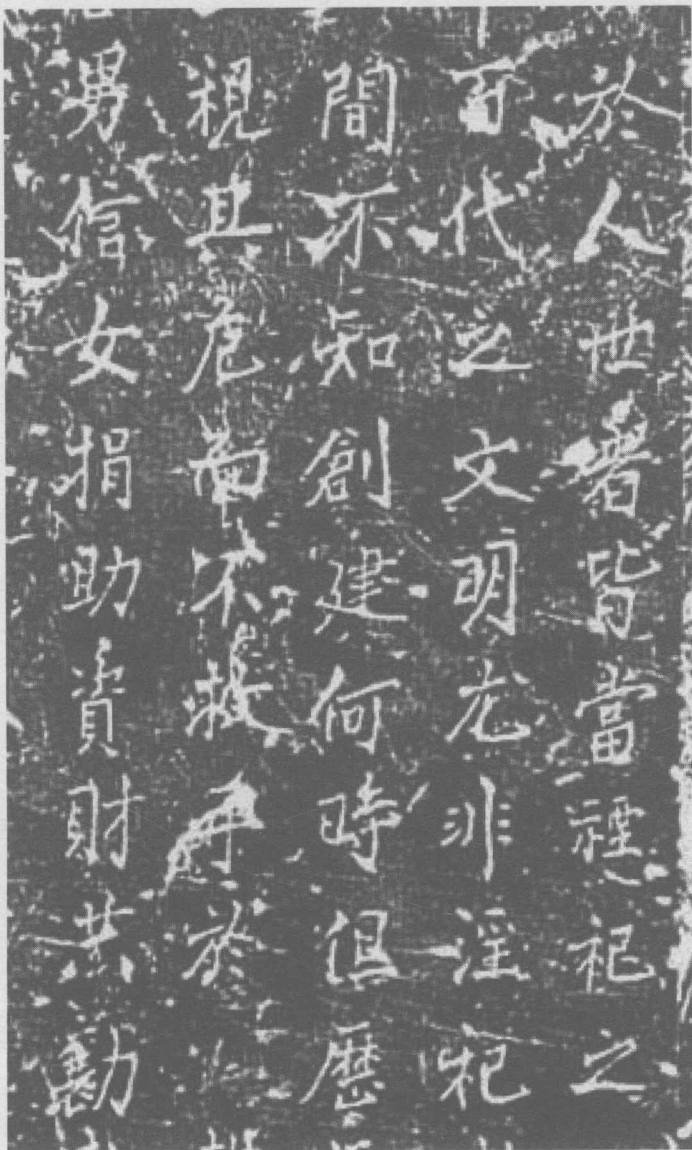 於人世者皆當禋祀之
百代之文明尤非淫祀
間不知創建何時但歷
視其危而不救乎於
男信女捐助資財共勷